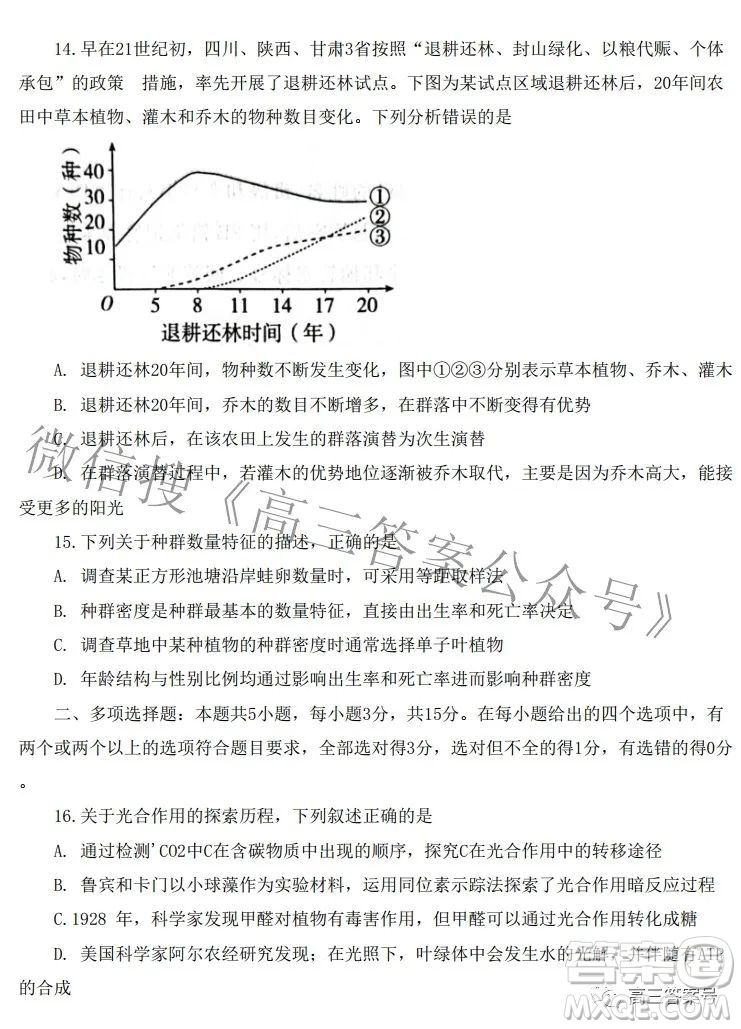 14.早在21世纪初，四川、陕西、甘肃3省按照“退耕还林、封山绿化、以粮代赈、个体
承包”的政策　措施，率先开展了退耕还林试点。下图为某试点区域退耕还林后，20年间农
田中草本植物、灌木和乔木的物种数目变化。下列分析错误的是
物种数（种）
40
30
20
10
①
②
③
O 5 8 11 14 17 20
退耕还林时间（年）
A. 退耕还林20年间，物种数不断发生变化，图中①②③分别表示草本植物、乔木、灌木
B. 退耕还林20年间，乔木的数目不断增多，在群落中不断变得有优势
C. 退耕还林后，在该农田上发生的群落演替为次生演替
D. 在群落演替过程中，若灌木的优势地位逐渐被乔木取代，主要是因为乔木高大，能接
受更多的阳光
15.下列关于种群数量特征的描述，正确的是
A. 调查某正方形池塘沿岸蛙卵数量时，可采用等距取样法
B. 种群密度是种群最基本的数量特征，直接由出生率和死亡率决定
C. 调查草地中某种植物的种群密度时通常选择单子叶植物
D. 年龄结构与性别比例均通过影响出生率和死亡率进而影响种群密度
二、多项选择题：本题共5小题，每小题3分，共15分。在每小题给出的四个选项中，有
两个或两个以上的选项符合题目要求，全部选对得3分，选对但不全的得1分，有选错的得0分
。
16.关于光合作用的探索历程，下列叙述正确的是
A. 通过检测'CO2中C在含碳物质中出现的顺序，探究C在光合作用中的转移途径
B. 鲁宾和卡门以小球藻作为实验材料，运用同位素示踪法探索了光合作用暗反应过程
C.1928 年，科学家发现甲醛对植物有毒害作用，但甲醛可经光合作用转化成糖
D. 美国科学家阿尔农经研究发现：在光照下，叶绿体中会发生水的光解，并伴随有ATP
的合成
微信搜《高三答案公众号》
答案圈
MXQE.COM
高三答案号